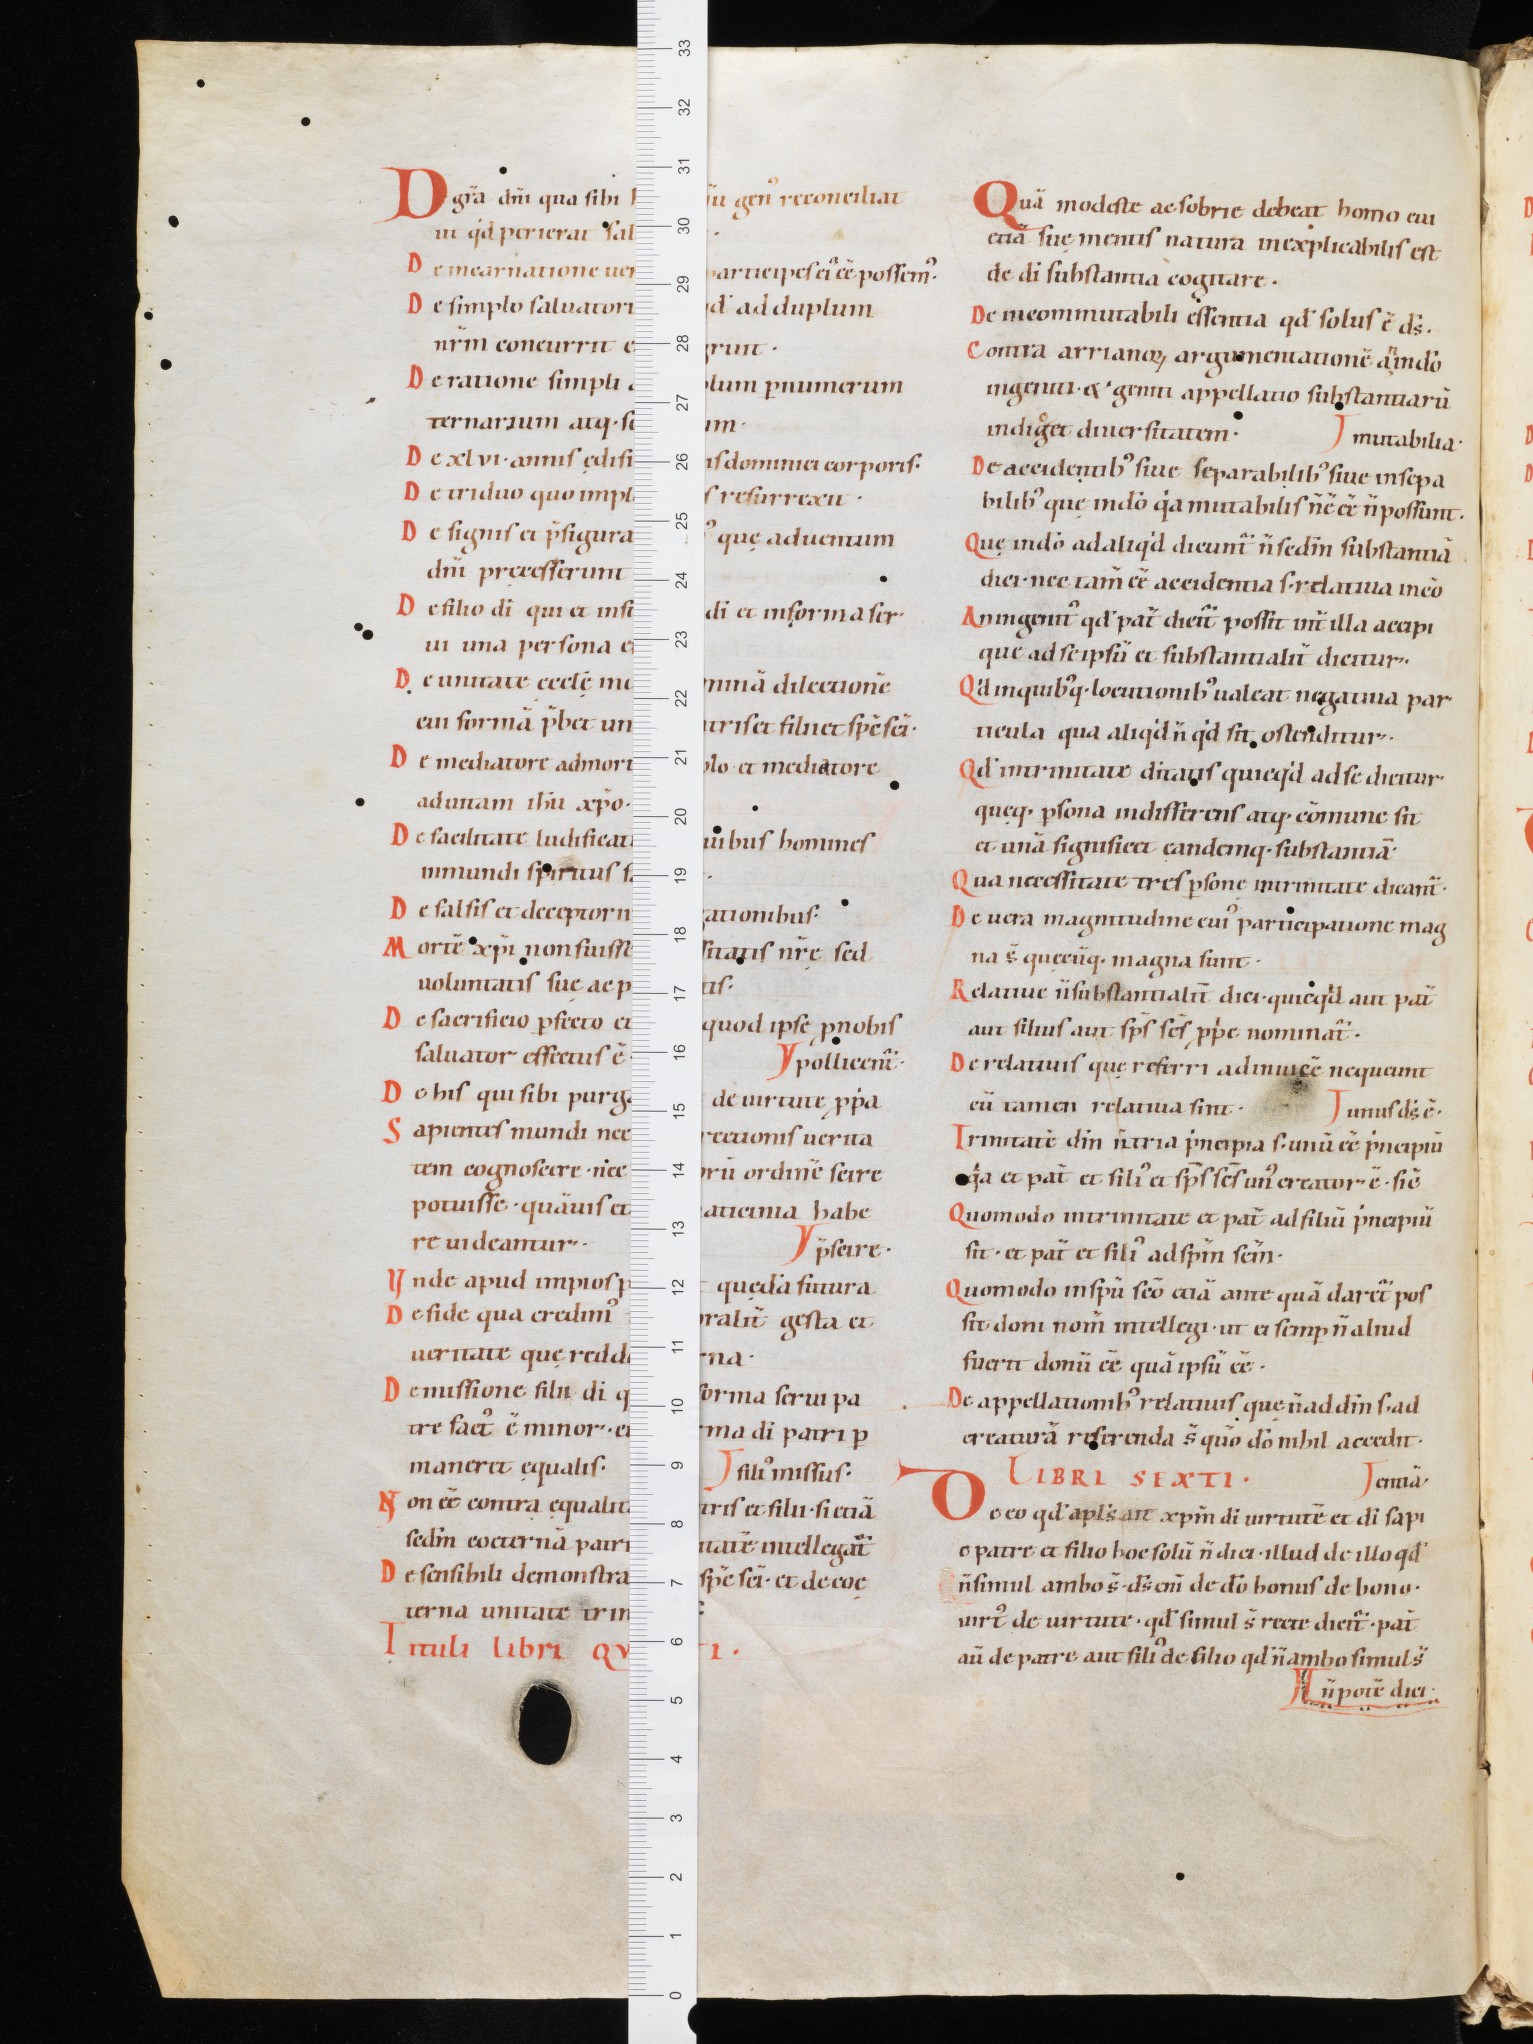 D gr̄a dn̄i qua sibi h ū gen᷒ reconciliat
ut qd̓ perierat sal .
D e incarnatione uer participes ei᷒ ēe possem᷒.
D e simplo saluatori qd̓ ad duplum
nr̄m concurrit e grint ·
D e ratione simpli a plum p̲numerum
ternarium atq· se um·
D e xlvi· annis ędifi is dominici corporis·
D e triduo quo impl s resurrexit ·
D e signis et p̄figura ᷒ quę aduentum
dn̄i precesserunt
D e filio di qui et in fo di et in forma ser·
ui una persona e
D e unitate ecclę̄ me mnā dilectionē
cui formā p̄bet un tris et filii et sp̄c sc̄i·
D e mediatore ad mort olo et mediatore
ad uitam ih̄u xp̄o·
D e facilitate ludificati uibus homines
inmundi spiritus fa .
D e falsis et deceptorii gationibus·
M ortē xp̄i non fuisse sitatis nr̄ę sed
uoluntatis suę ac p tis·
D e sacrificio p̲fecto et quod ipse p̲nobis
saluator effectus ē· y pollicent̄·
D e his qui sibi purga de uirtute p̲p̓a
S apientes mundi nec rectionis uerita
tem cognoscere· nec orū ordinē scire
potuisse· quāuis et aticinia habe
re uideantur· y p̄scire·
U nde apud impios p quędā futura
D e fide qua credim᷒ t oralit̄ gesta et
ueritate quę redde rna·
D e missione filii di q forma serui pa
tre fact᷒ ē minor· et rma di patri p̲
maneret ęqualis· J fili᷒ missus·
N on ēe contra ęqualita tris et filii· si etiā
sedm̄ coeternā patri itatē intellegat̄
D e sensibili demonstra sp̄c sc̄i· et de coę
terna unitate trin
Tituli libri QV TI .
Quā modeste ac sobrie debeat homo cui
etiā suę mentis natura inexplicabilis est
de di substantia cogitare ·
De incommutabili essentia qd̓ solus ē ds̄.
Contra arrianoꝝ argumentationē qn̄ in dō
ingeniti· & geniti appellatio substantiarū
indiget diuersitatem· J mutabilia·
De accidentib᷒ siue separabilib᷒ siue insepa
bilib᷒ quę in dō q̓a mutabilis n̄ ē ēe n̄ possunt·
Quę in dō ad aliqd̓ dicunt̄ n̄ sedm̄ substantiā
dici· nec tam̄ ēe accidentia s· relatiua in eo
An ingenit᷒ qd̓ pat̄ dicit̄ possit int̄ illa accipi
quę ad se ipsū et substantialit̄ dicitur·
Qd̓ in quib᷒q· locutionib᷒ ualeat negatiua par
ticula qua aliqd̓ n̄ qd̓ sit, ostenditur·
Qd̓ in trinitate ditatis quicqd̓ ad se dicitur·
quęq· p̲sona indifferens atq· cōmune sit
et unā significet eandemq· substantiā·
Qua necessitate tres p̲sonę in trinitate dicant̄·
De uera magnitudine cui᷒ participatione mag
na s̄ quęcūq· magna sunt·
Relatiue n̄ substantialit̄ dici· quicqd̓ aut pat̄
aut filius aut sp̄s sc̄s p̲p̓e nominat̄·
De relatiuis quę referri ad inuicē nequeunt
cū tamen relatiua sint· J unus ds̄ ē·
Trinitatē dm̄ n̄ tria p̓ncipia s· unū ēe p̓ncipiū
q̓a et pat̄ et fili᷒ et sp̄s sc̄s un᷒ creator ē· sic̄
Quomodo in trinitate et pat̄ ad filiū p̓ncipiū
sit· et pat̄ et fili᷒ ad sp̄m sc̄m·
Quomodo in sp̄u sc̄o etiā ante quā daret̄ pos
sit doni nom̄ intellegi· ut ei semp̲ n̄ aliud
fuerit donū ēe quā ipsū ēe·
De appellationib᷒ relatiuis quę n̄ ad dm̄ s· ad
creaturā referenda s̄ quō dō nihil accedit·
LIBRI SEXTI · J entiā·
De eo qd̓ apl̄s ait xp̄m di uirtutē et di sapi
e patre et filio hoc solū n̄ dici· illud de illo qd̓
n̄ simul ambo s̄· ds̄ em̄ de dō bonus de bono·
uirt᷒ de uirtute· qd̓ simul s̄ recte dicit̄· pat̄
aū de patre aut fili᷒ de filio qd̓ n̄ ambo simul s̄
n̄ potē dici·
33
32
31
30
29
28
27
26
25
24
23
22
21
20
19
18
17
16
15
14
13
12
11
10
9
8
7
6
5
4
3
2
1
0